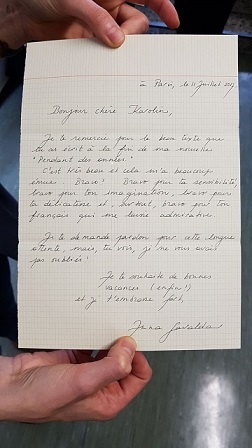 à Paris, le 11 juillet 2017
Bonjour chère Karolin,
Je te remercie pour le beau texte que
tu as écrit à la fin de ma nouvelle
"Pendant des années".
C'est très beau et cela m'a beaucoup
émue. Bravo ! Bravo pour ta sensibilité,
bravo pour ton imagination, bravo pour
ta délicatesse et, surtout, bravo pour ton
français qui me laisse admirative.
Je te demande pardon pour cette longue
attente, mais, tu vois, je ne vous avais
pas oubliés !
Je te souhaite de bonnes
vacances (enfin !)
et je t'embrasse fort,
Anna Gavalda